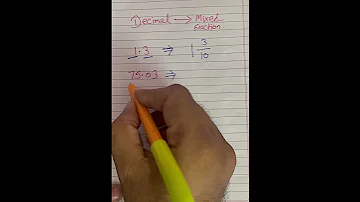 Decimal → Mixed
fraction
1.3 ⇒ 1 3/10
75.03 ⇒